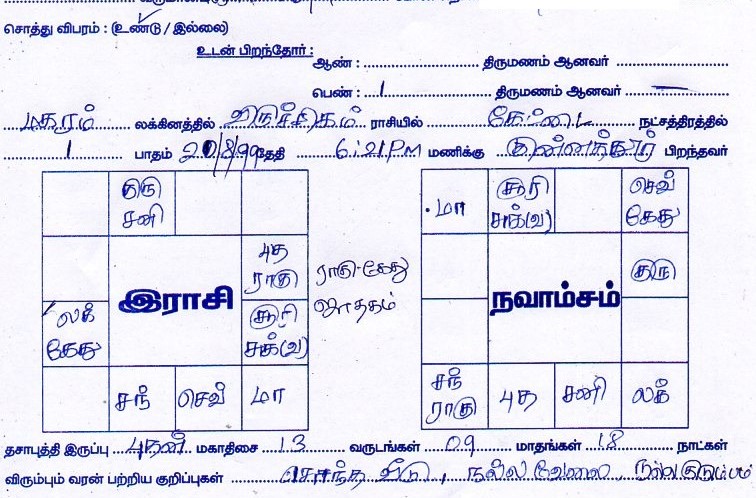 சொத்து விபரம் : (உண்டு / இல்லை)
உடன் பிறந்தோர் :
ஆண் : திருமணம் ஆனவர்
பெண் : 1 திருமணம் ஆனவர் —
மகரம் லக்கினத்தில் விருச்சிகம் ராசியில் கேட்டை நட்சத்திரத்தில்
1 பாதம் 20/8/99 தேதி 6:21PM மணிக்கு குன்னத்தூர் பிறந்தவர்
குரு சனி
புத ராகு
இராசி
லக் கேது
சூரி சுக்(வ)
சந் செவ் மா
ராகு-கேது
ஜாதகம்
மா சூரி சுக்(வ) செவ் கேது
குரு
நவாம்சம்
சந் ராகு புத சனி லக்
தசாபுத்தி இருப்பு புதன் மகாதிசை 13 வருடங்கள் 09 மாதங்கள் 18 நாட்கள்
விரும்பும் வரன் பற்றிய குறிப்புகள் சொந்த வீடு, நல்ல வேலை, நல்ல குடும்பம்